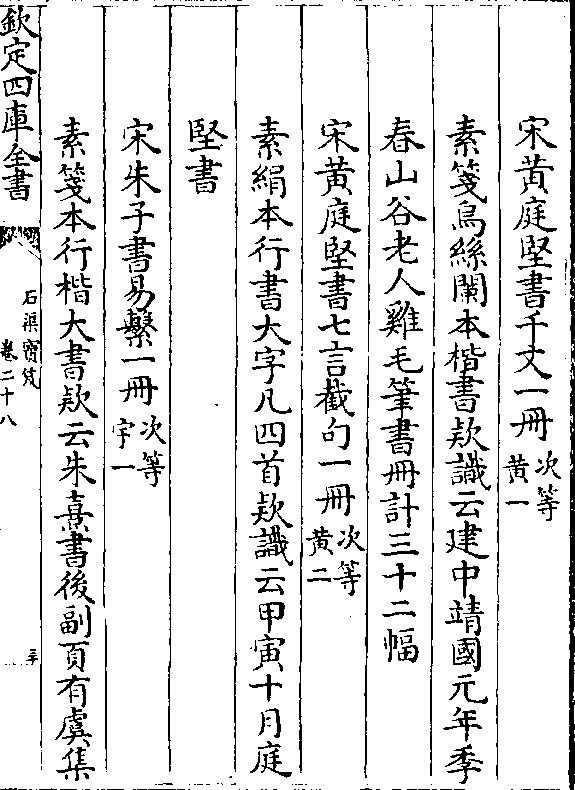 宋黄庭堅書千文一冊次等黄一
素箋烏絲闌本楷書欵識云建中靖國元年季
春山谷老人雞毛筆書冊計三十二幅
宋黄庭堅書七言截句一冊次等黄二
素絹本行書大字凡四首欵識云甲寅十月庭
堅書
宋朱子書易繫一冊次等宇一
素箋本行楷大書欵云朱熹書後副頁有虞集
欽定四庫全書
石渠寶笈
卷二十八
三十